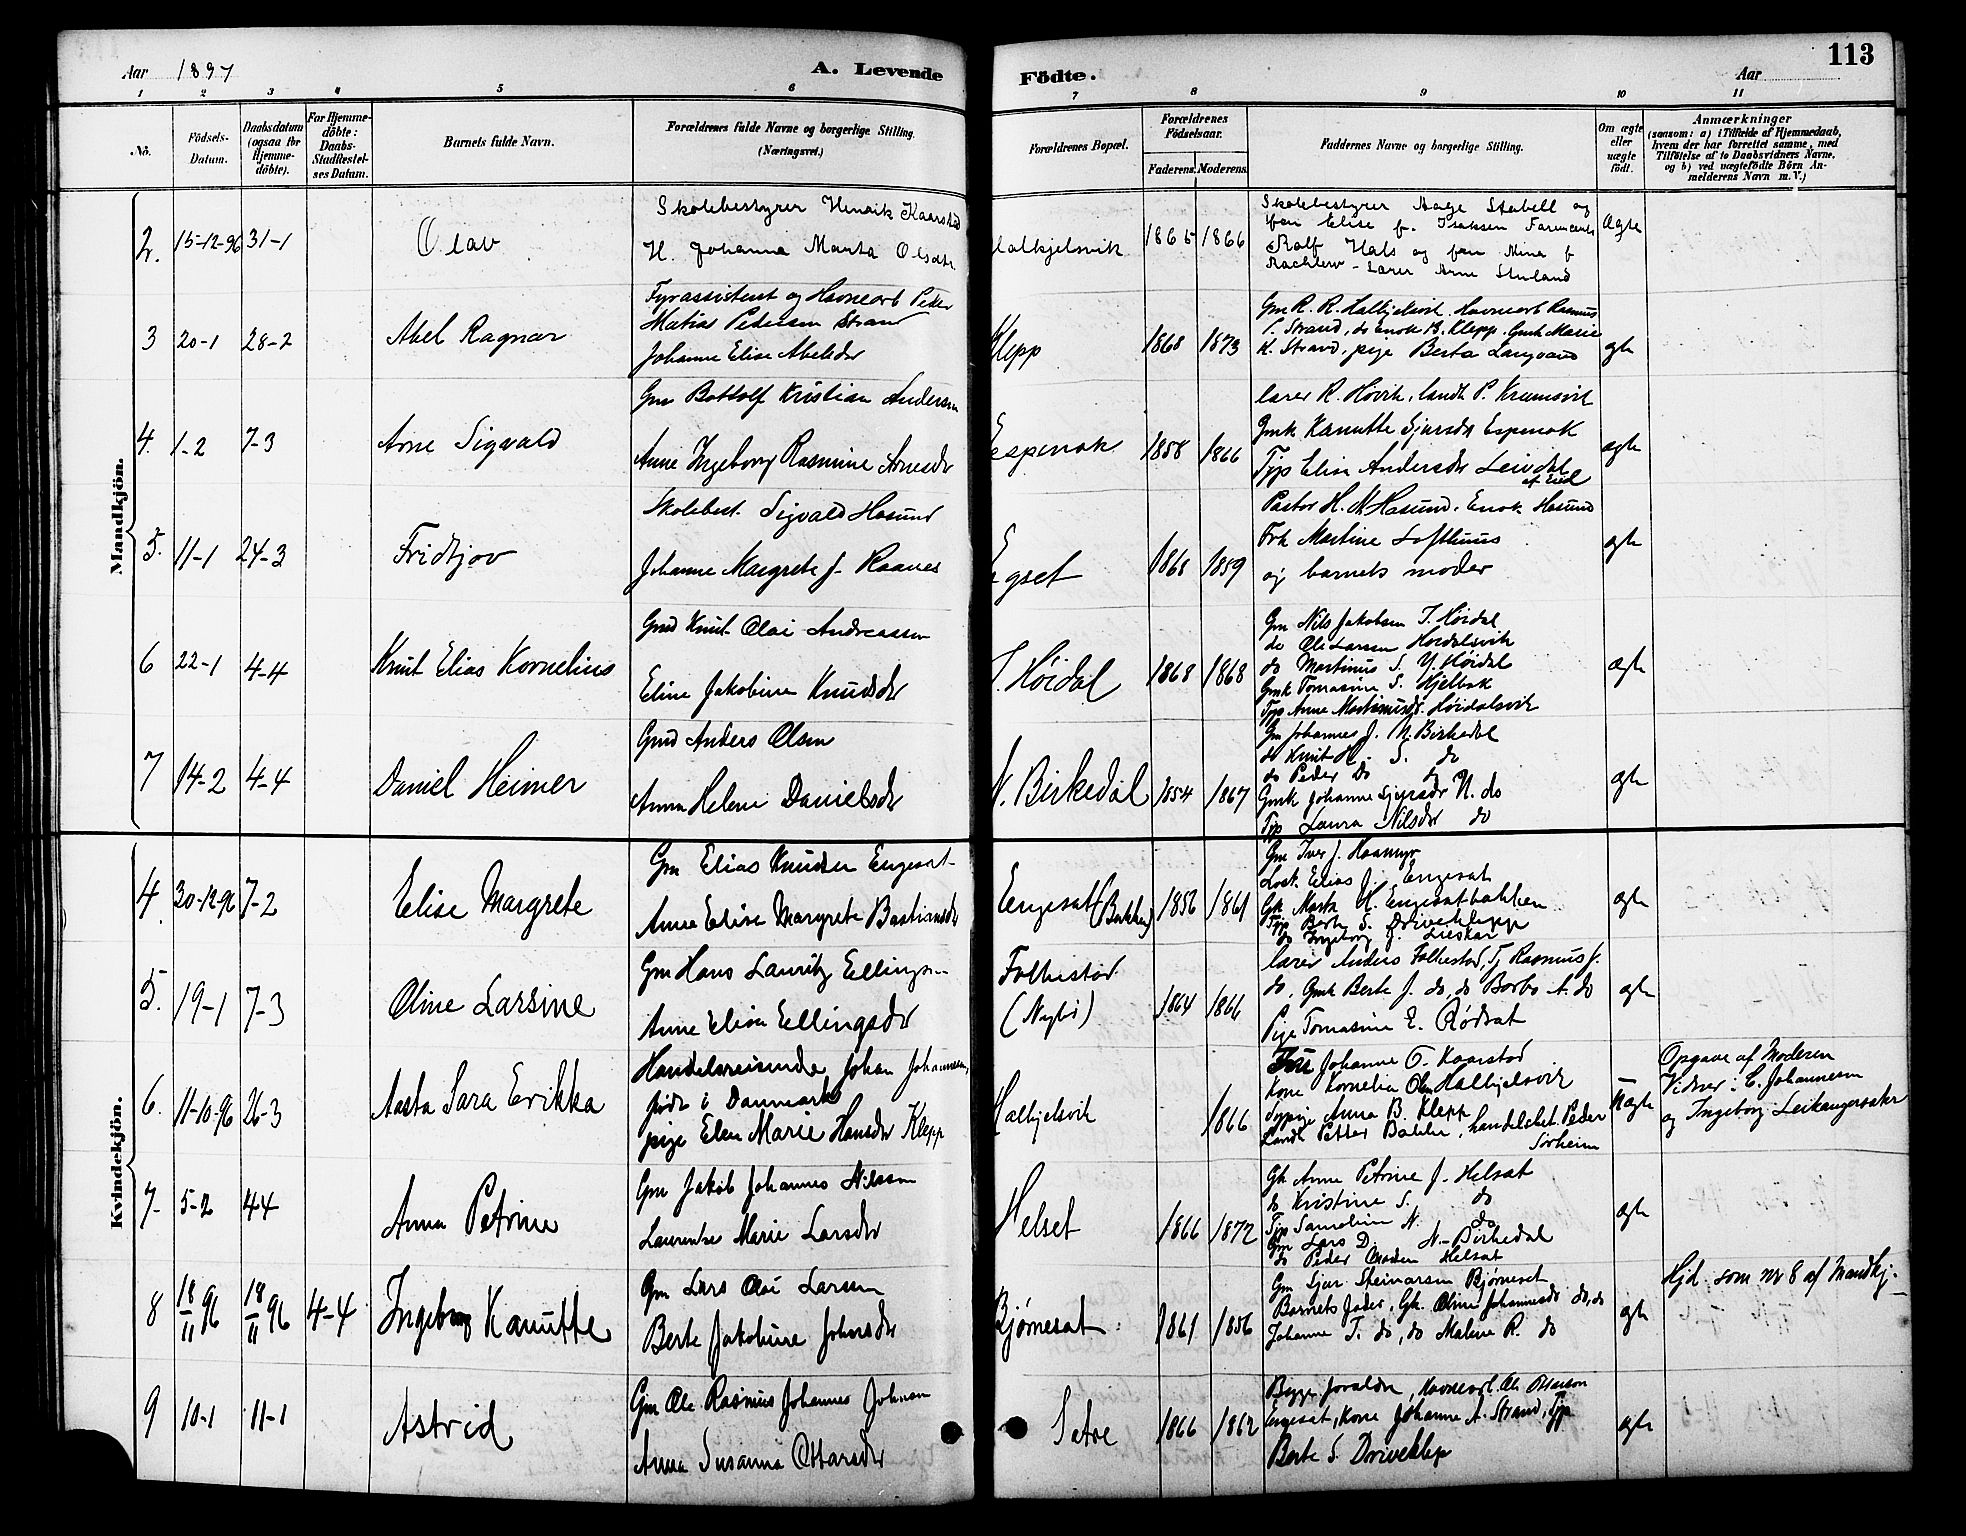 113
Aar 1897
A. Levende
Födte.
Aar
1 2 3 4 5 6 7 8 9 10 11
No.
Födsels-Datum.
Daabsdatum (ogsaa for Hjemme-döbte).
For Hjemme-döbte: Daabs-Stadfæstel-ses Datum.
Barnets fulde Navn.
Forældrenes fulde Navne og borgerlige Stilling.
(Næringsvei.)
Forældrenes Bopæl.
Forældrenes Födselsaar.
Faderens. Moderens.
Faddernes Navne og borgerlige Stilling.
Om ægte eller uægte födt.
Anmærkninger
(saasom: a) i Tilfælde af Hjemmedaab,
hvem der har forrettet samme, med
Tilföielse af to Daabsvidners Navne,
og b) ved uægtefödte Börn An-
melderens Navn m. V.)
Mandkjön.
2. 15-12-96 31-1 Olav
Skolebestyrer Henrik Kaarstad
H. Johanna Marta Olsdtr
Halkjelsvik 1865 1866
Skolebestyrer Aage Stabell og
fru Elise f. Isaksen
Rolf Hals og fru Mina f
Lærer Arne
Ægte
3 20-1 28-2 Abel Ragnar
Fyrassistent og Havnearb Peder
Matias Pedersen Strand
Johanne Elise Abelsdr
Klepp 1868 1873
Gm R. R. Halkjelsvik. Havnearb Rasmus
P. Strand, do Enok B. Klepp. Gmk Marie
K. Strand, pige Berta Langvand
ægte
4. 1-2 7-3 Arne Sigvald
Gm Bottolf Kristian Andersen
Anne Ingeborg Rasmine Arnesdr
Espenak 1858 1866
lærer R. Høvik, landh P. Krumsvik
Gmk Kanutte Sjursdr Espenak
Typ Elise Andersdr Leivdal
af Eid
ægte
5. 11-1 24-3 Fridtjov
Skolebest. Sigvald Hasund
Johanne Margrete f. Raanes
Egset 1868 1859
Pastor H. M Hasund. Enok Hasund
Frk Martine Lofthuus
og barnets moder
ægte
6 22-1 4-4 Knut Elias Kornelius
Gmd Knut Olai Andreassen
Eline Jakobine Knudsdr
I. Høidal 1868 1868
Gm Nils Jakobsen I. Høidal
do Ole Larsen Hoidalsvik
do Martinus S. Y. Høidal
Gmk Tomasine S. Hjelbak
Typ Anne Martinusdr. Høidalsvik
ægte
7 14-2 4-4 Daniel Heimer
Gmd Anders Olsen
Anna Helene Danielsdr
N. Birkedal 1854 1867
Gm Johannes J. N. Birkedal
do Knut H. S. do
do Peder do do
Gmk Johanne Sjursdr N. do
Typ Laura Nilsdr do
ægte
Kvindekjön.
4 30-12-96 7-2 Elise Margrete
Gm Elias Knudsen Engesæt
Anne Elise Margrete Bastiansdr
Engesæt (Bakken) 1856 1861
Gm Iver J. Haamyr
Elias J. Engesæt
Gk Marta H. Engesætbakken
Typ Berte S. Driveklepp
do Ingeborg J. Lieskar
ægte
5. 19-1 7-3 Oline Larsine
Gm Hans Lauritz Ellingsen
Anne Elise Ellingsdr
Folkestad
(Nybø) 1864 1866
lærer Anders Folkestad, Tj Rasmus J.
do, Gmk Berte J. do, do Barbo A. do
Pige Tomasine E. Rødsæt
ægte
6. 11-10-96 26-3 Aasta Sara Erikka
Handelsreisende Johan Johannesen,
født i Danmark
pige Elen Marie Hansdr Klepp
Halkjelsvik 1866
Fru Johanne O. Kaarstad
Kone Kornelia Olsen Halkjelsvik
Typige Anna B. Klepp
Landh Petter Bakke, handelsbet. Peder
Sørheim
Uægte
Opgave af Moderen
Vidner: C. Johannesen
og Ingeborg Leikangersæter
7- 5-2 4-4 Anna Petrine
Gm Jakob Johannes Nilsson
Laurentse Marie Larsdr
Helset 1866 1872
Gk Anne Petrine J. Helsæt
do Kristine S. do
Typ N. do
Gm Lars D. N. Birkedal
do Peder Helsæt
ægte
8 18/11 96 18/11 96 4-4 Ingeborg Kanutte
Gm Lars Olai Larsen
Berte Jakobine Johnsdr
Bjørnesæt 1861 1856
Gm Sjur Steinarsen Bjørneset
Barnets fader, Gk. Oline Johannesdr do, do
Johanne T. do, do Malene R. do
ægte
Hjd. som nr 8 af Mandkj.
9 10-1 11-1 Astrid
Gm Ole Rasmus Johannes Johnsen
Anna Susanna Ottarsdr
Sætre 1866 1862
Begge forældre, Havnearb. Ole Ottarson
Engesæt, Kone Johanne A. Strand, Typ
Berte S. Driveklep
ægte